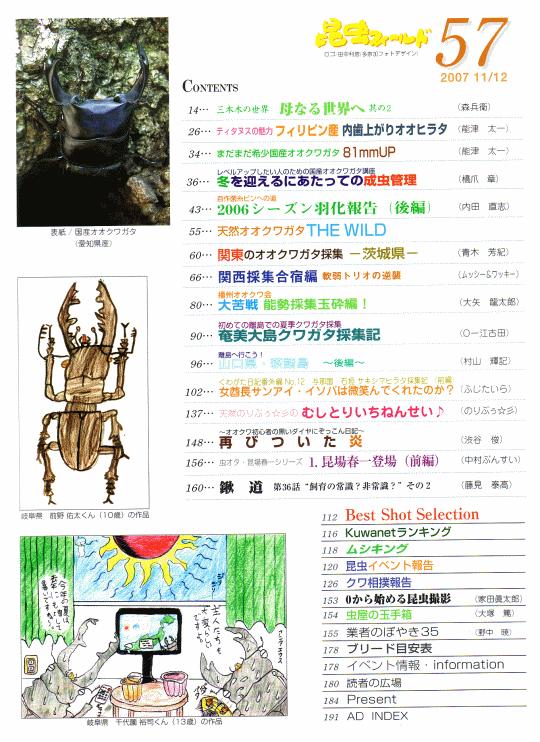 昆虫フィールド 57
ロゴ:田中利彦(多奈加フォトデザイン)
2007 11/12
CONTENTS
14… 三本木の世界 母なる世界へ 其の2 (森兵衛)
26… ティタヌスの魅力 フィリピン産 内歯上がりオオヒラタ (能津 太一)
34… まだまだ希少国産オオクワガタ 81mmUP (能津 太一)
レベルアップしたい人のための国産オオクワガタ講座
36… 冬を迎えるにあたっての成虫管理 (橋爪 章)
自作菌糸ビンへの道
43… 2006シーズン羽化報告(後編) (内田 直志)
55… 天然オオクワガタ THE WILD
60… 関東のオオクワガタ採集 ー茨城県ー (青木 芳紀)
66… 関西採集合宿編 軟弱トリオの逆襲 (ムッシー&ワッキー)
播州オオクワ会
80… 大苦戦 能勢採集玉砕編! (大矢 龍太郎)
初めての離島での夏季クワガタ採集
90… 奄美大島クワガタ採集記 (O一江古田)
離島へ行こう!
96… 山口県・ 島 ~後編~ (村山 輝記)
くわがた日記番外編 No.12 与那国 石垣 サキシマヒラタ採集記 (前編)
102… 女酋長サンアイ・イソバは微笑んでくれたのか? (ふじたいら)
137… 天然のりぶぅ☆彡の むしとりいちねんせい♪ (のりぶぅ☆彡)
~オオクワ初心者の黒いダイヤにぞっこん日記~
148… 再びついた炎 (渋谷 俊)
156… 虫オタ・昆場春一シリーズ 1. 昆場春一登場(前編) (中村ぶんすい)
160… 鍬 道 第36話“飼育の常識?非常識?” その2 (藤見 泰高)
表紙/国産オオクワガタ
(愛知県産)
岐阜県 前野 佑太くん(10歳)の作品
岐阜県 千代園 裕司くん(13歳)の作品
112 Best Shot Selection
116 Kuwanetランキング
118 ムシキング
120 昆虫イベント報告
126 クワ相撲報告
153 0から始める昆虫撮影 (家田眞太郎)
154 虫屋の玉手箱 (大塚 篤)
155 業者のぼやき35 (野中 暁)
178 ブリード目安表
178 イベント情報・information
180 読者の広場
184 Present
191 AD INDEX